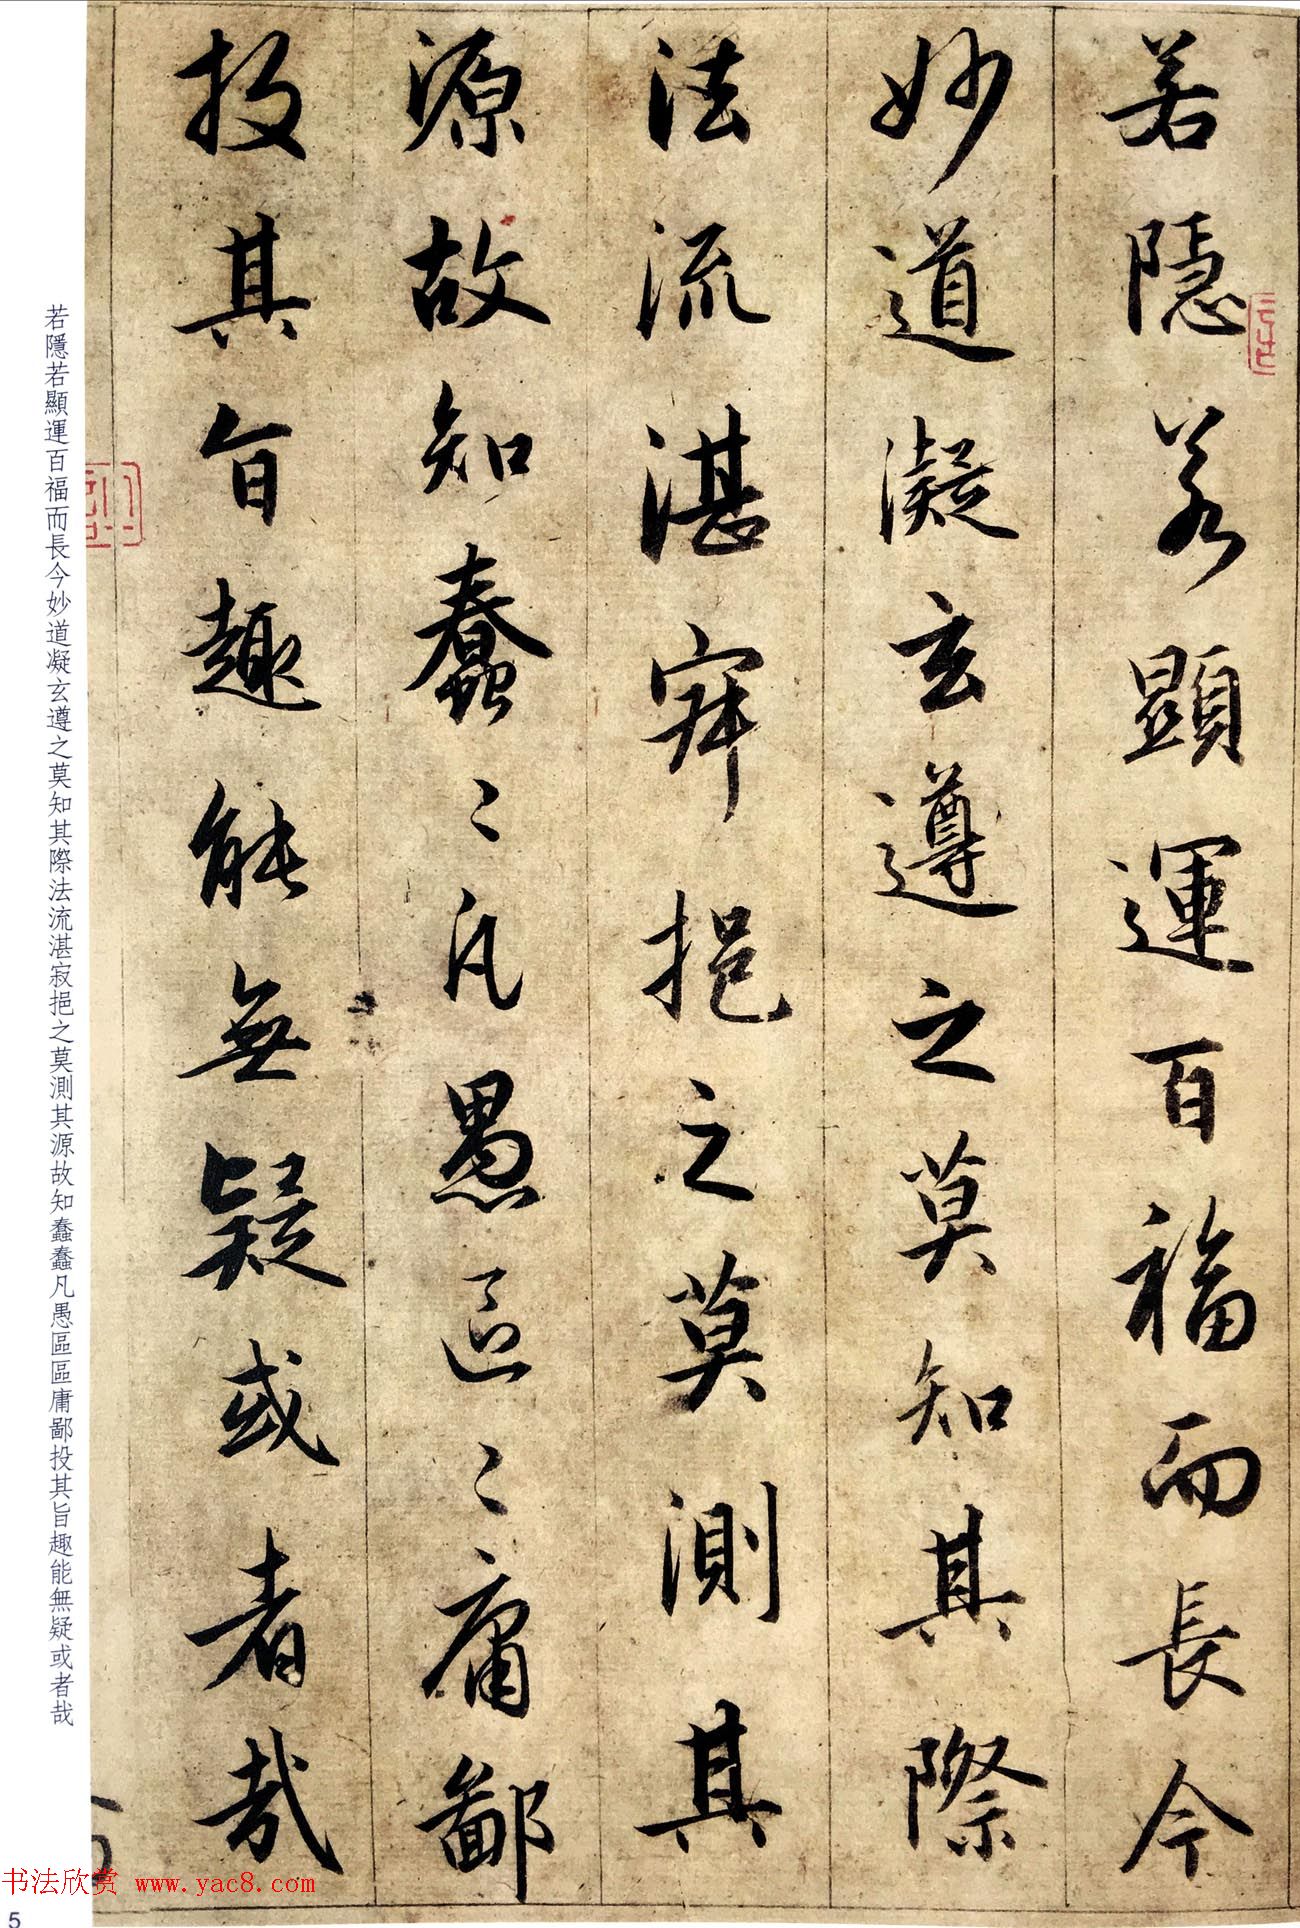 若隱若顯運百福而長今
妙道凝玄遵之莫知其際
法流湛寂挹之莫測其
源故知蠢〻凡愚區〻庸鄙
投其旨趣能無疑或者哉
若隱若顯運百福而長今妙道凝玄遵之莫知其際法流湛寂挹之莫測其源故知蠢蠢凡愚區區庸鄙投其旨趣能無疑或者哉
书法欣赏 www.yac8.com
5